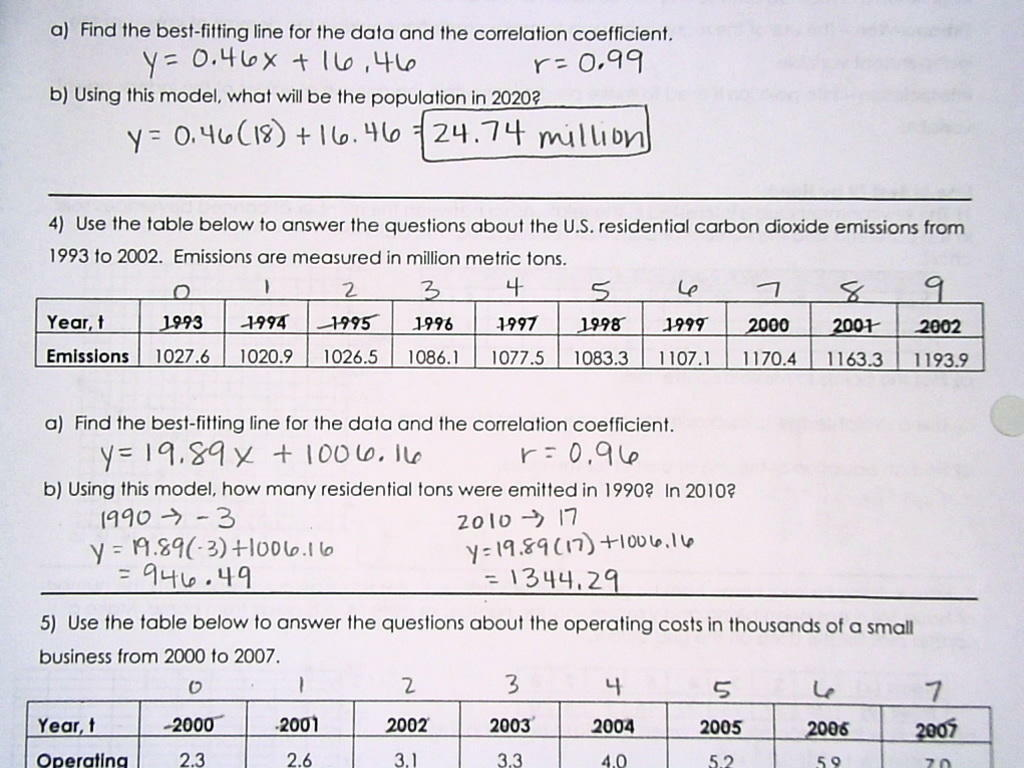 a) Find the best-fitting line for the data and the correlation coefficient.
y = 0.46x + 16.46 r = 0.99
b) Using this model, what will be the population in 2020?
y = 0.46(18) + 16.46 = 24.74 million
4) Use the table below to answer the questions about the U.S. residential carbon dioxide emissions from
1993 to 2002. Emissions are measured in million metric tons.
0 1 2 3 4 5 6 7 8 9
Year, t 1993 1994 1995 1996 1997 1998 1999 2000 2001 2002
Emissions 1027.6 1020.9 1026.5 1086.1 1077.5 1083.3 1107.1 1170.4 1163.3 1193.9
a) Find the best-fitting line for the data and the correlation coefficient.
y = 19.89x + 1006.16 r = 0.96
b) Using this model, how many residential tons were emitted in 1990? In 2010?
1990 → -3 2010 → 17
y = 19.89(-3) + 1006.16 y = 19.89(17) + 1006.16
= 946.49 = 1344.29
5) Use the table below to answer the questions about the operating costs in thousands of a small
business from 2000 to 2007.
0 1 2 3 4 5 6 7
Year, t 2000 2001 2002 2003 2004 2005 2006 2007
Operating 2.3 2.6 3.1 3.3 4.0 5.2 5.9 7.0